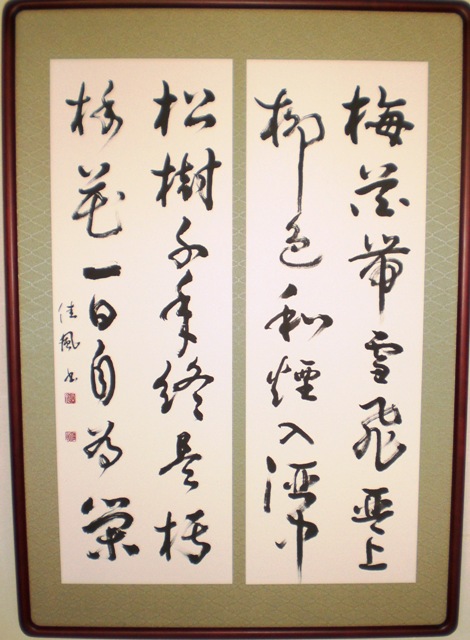 梅花帯雪飛琴上
柳色和煙入酒中
松樹千年終是朽
槿花一日自為栄
佳風書